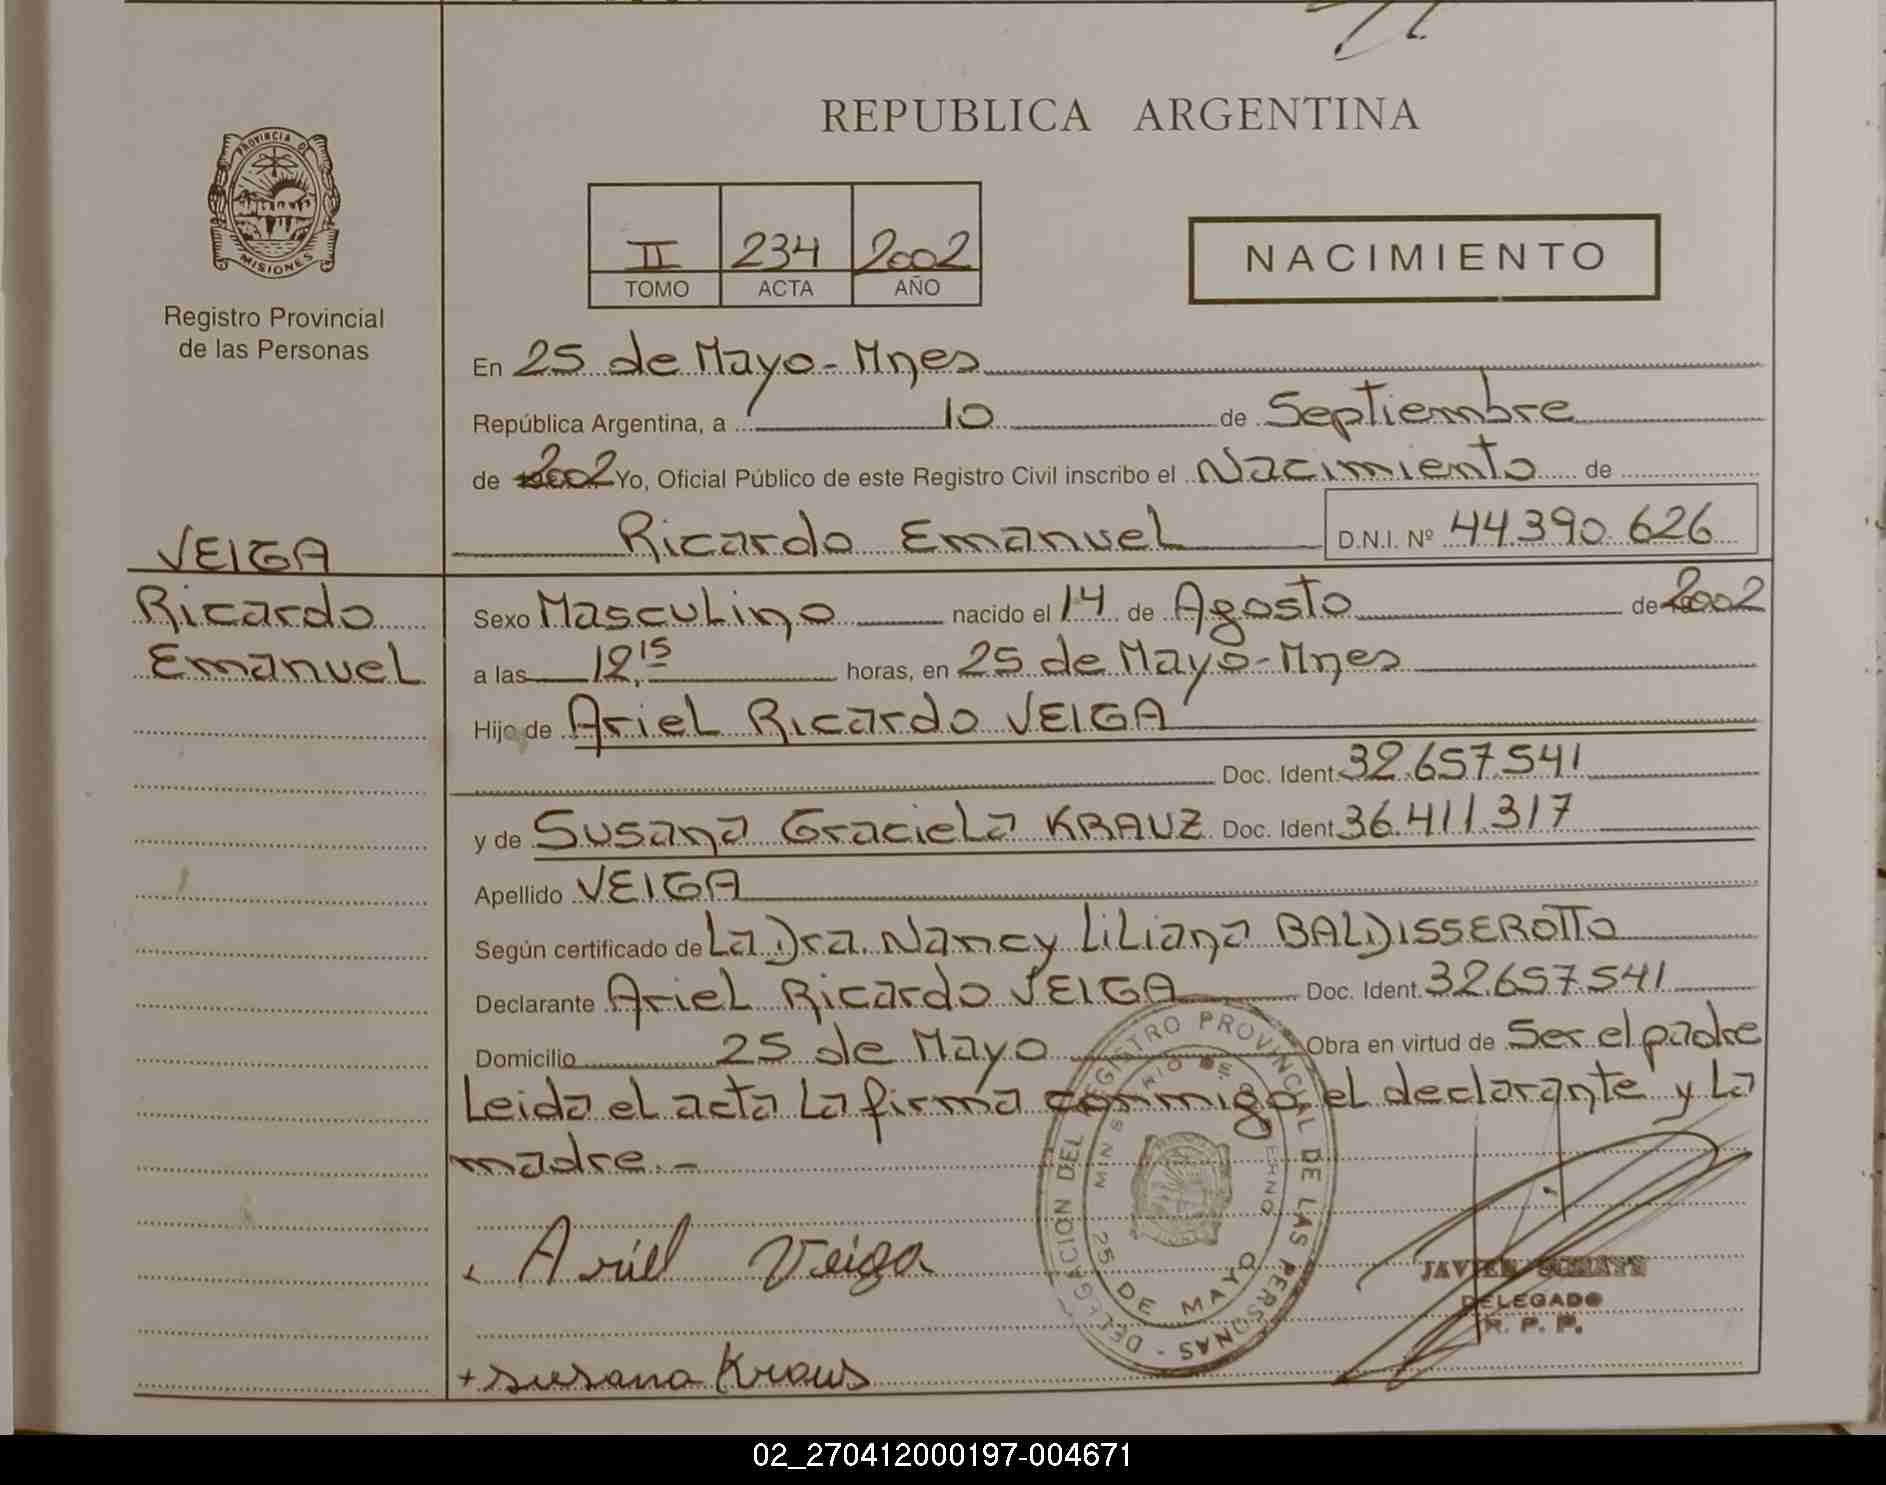 REPUBLICA ARGENTINA
PROVINCIA DE
MISIONES
Registro Provincial
de las Personas
II 234 2002
TOMO ACTA AÑO
NACIMIENTO
En 25 de Mayo - Mnes
República Argentina, a 10 de Septiembre
de 2002 Yo, Oficial Público de este Registro Civil inscribo el Nacimiento de
Ricardo Emanuel D.N.I. Nº 44.390.626
VEIGA
Ricardo
Emanuel
Sexo Masculino nacido el 14 de Agosto de 2002
a las 12,15 horas, en 25 de Mayo - Mnes
Hijo de Ariel Ricardo VEIGA
Doc. Ident. 32.657.541
y de Susana Graciela KRAUZ Doc. Ident 36.411.317
Apellido VEIGA
Según certificado de La Dra. Nancy Liliana BALDISSEROTTO
Declarante Ariel Ricardo VEIGA Doc. Ident. 32.657.541
Domicilio 25 de Mayo Obra en virtud de Ser el padre
Leida el acta la firma conmigo el declarante y la
madre.-
DELEGACION DEL REGISTRO PROVINCIAL DE LAS PERSONAS -
25 DE MAYO
Ariel Veiga
JAVIER
DELEGADO
R. P. P.
+ susana Kraus
02_270412000197-004671